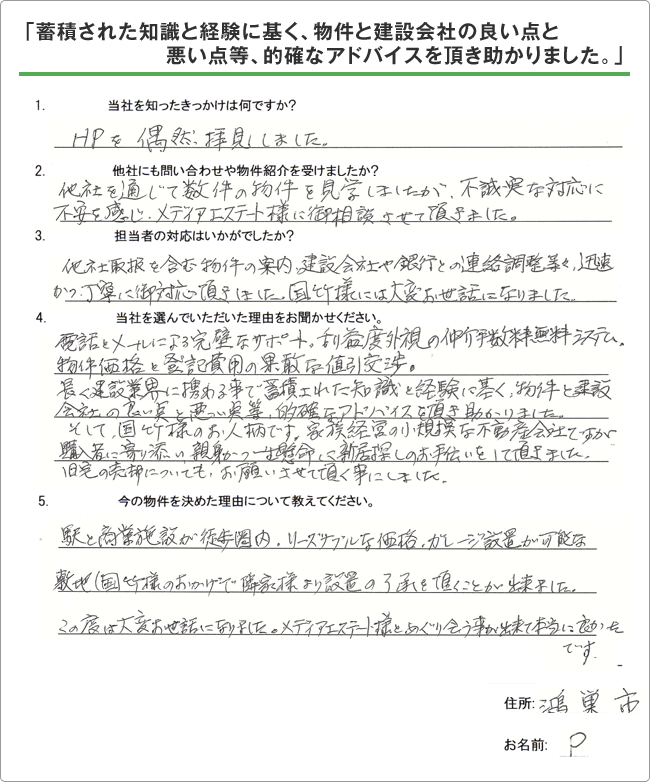 「蓄積された知識と経験に基く、物件と建設会社の良い点と
悪い点等、的確なアドバイスを頂き助かりました。」
1. 当社を知ったきっかけは何ですか?
HPを偶然、拝見しました。
2. 他社にも問い合わせや物件紹介を受けましたか?
他社を通じて数件の物件を見学しましたが、不誠実な対応に
不安を感じ、メディアエステート様に御相談させて頂きました。
3. 担当者の対応はいかがでしたか?
他社取扱を含む物件の案内、建設会社や銀行との連絡調整等々、迅速
かつ丁寧に御対応頂きました。国竹様には大変お世話になりました。
4. 当社を選んでいただいた理由をお聞かせください。
電話とメールによる完璧なサポート。利益度外視の仲介手数料無料システム。
物件価格と登記費用の果敢な値引交渉。
長く建設業界に携わる事で蓄積された知識と経験に基く、物件と建設
会社の良い点と悪い点等、的確なアドバイスを頂き助かりました。
そして、国竹様のお人柄です。家族経営の小規模な不動産会社ですが
購入者に寄り添い親身かつ一生懸命に新居探しのお手伝いをして頂きました。
旧宅の売却についても、お願いさせて頂く事にしました。
5. 今の物件を決めた理由について教えてください。
駅と商業施設が徒歩圏内、リーズナブルな価格、ガレージ設置が可能な
敷地(国竹様のおかげで隣家様より設置の了承を頂くことが出来ました。
この度は大変お世話になりました。メディアエステート様とめぐり会う事が出来て本当に良かった
です。
住所: 鴻巣市
お名前: P